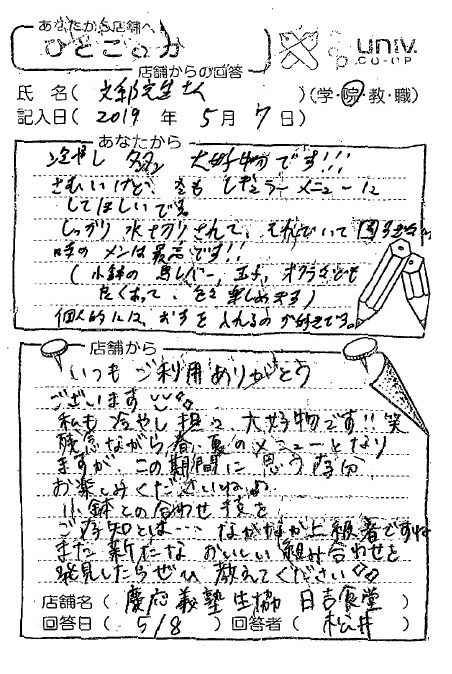 あなたから店舗へ
ひとことカード
univ.
CO-OP
店舗からの回答
氏 名 ( ) (学・院・教・職)
記入日 ( 2019 年 5 月 7 日 )
あなたから
冷やし 大好物です!!!
さむいけど、 レギュラーメニューに
してほしいです。
しっかり 水切りされて、
時のメンは最高です!!
(小鉢の 蒸しパー、玉子、オクラなども
)
個人的には、お酢を入れるのが好きです。
店舗から
いつも ご利用ありがとう
ございます
私も 冷やし担々、大好物です!!笑
残念ながら春、夏のメニューとなり
ますが、この期間に 思う存分
お楽しみくださいね。
小鉢との合わせ技を
ご存知とは… なかなか上級者ですね
また 新たな おいしい 組み合わせを
発見したらぜひ 教えてください
店舗名 ( 慶応義塾生協 日吉食堂 )
回答日 ( 5/8 ) 回答者 ( 松井 )